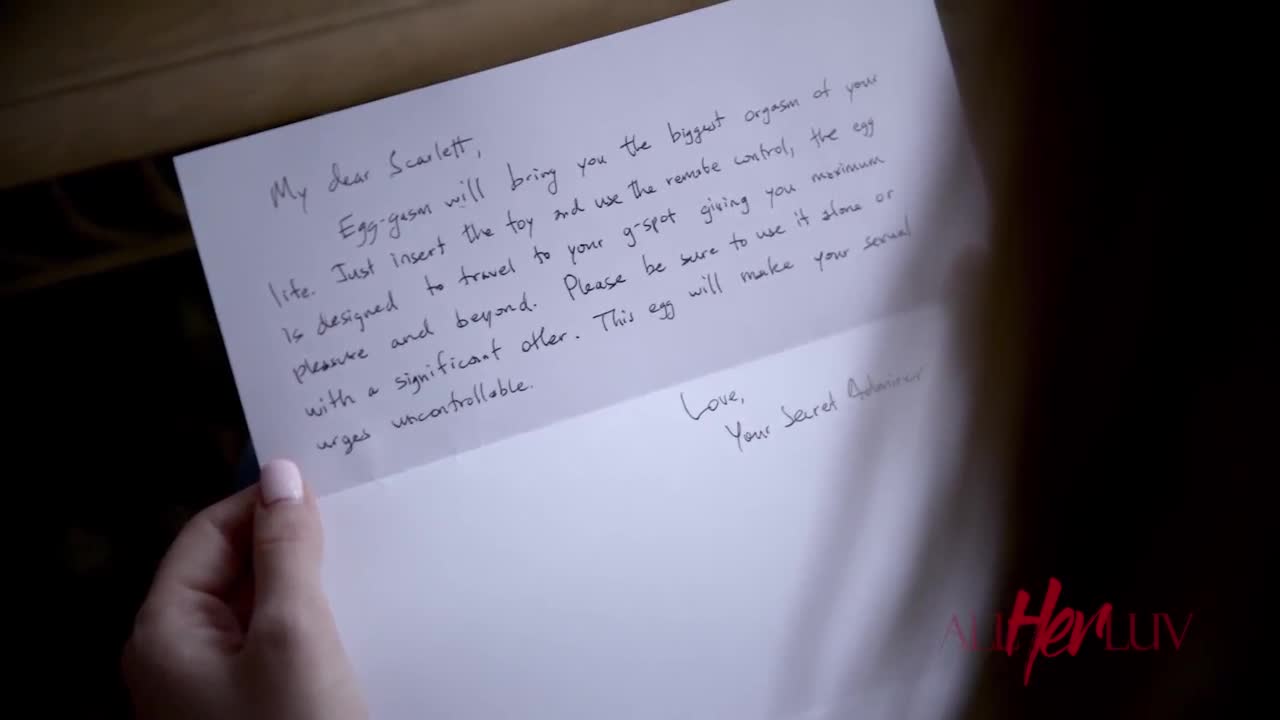 My dear Scarlett,
Egg-gasm will bring you the biggest orgasm of your
life. Just insert the toy and use the remote control, the egg
is designed to travel to your g-spot giving you maximum
pleasure and beyond. Please be sure to use it alone or
with a significant other. This egg will make your sexual
urges uncontrollable.
Love,
Your Secret Admirer
ALLHerLUV